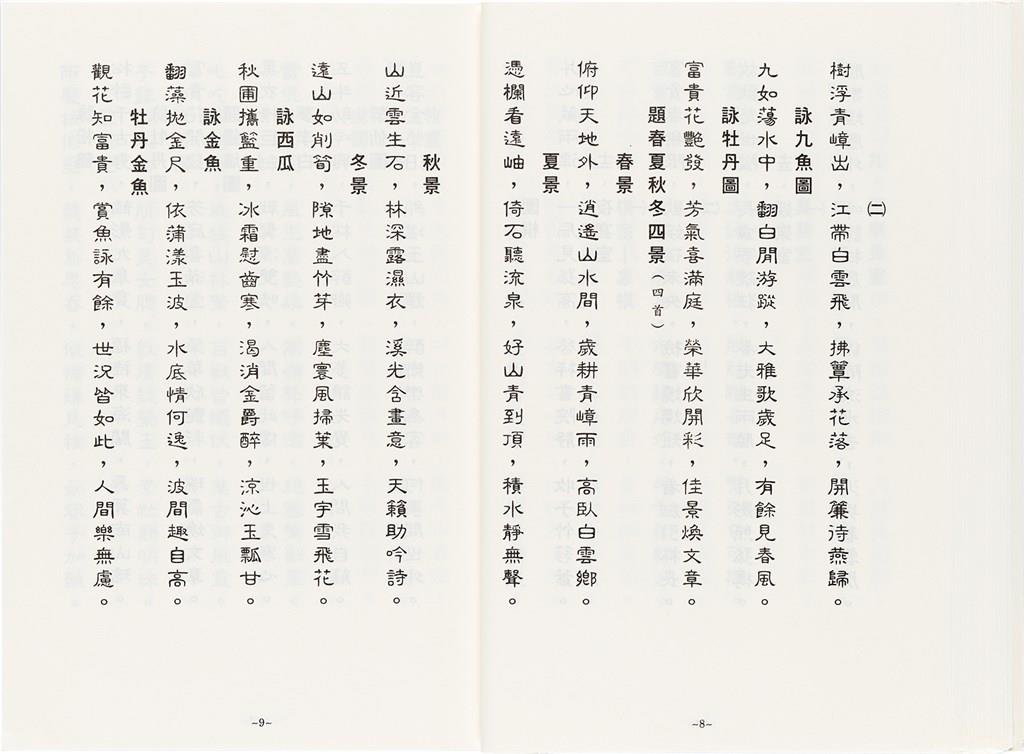 (二)
樹浮青嶂出，江帶白雲飛，拂簟承花落，開簾待燕歸。
詠九魚圖
九如蕩水中，翻白閒游蹤，大雅歌歲足，有餘見春風。
詠牡丹圖
富貴花艷發，芳氣喜滿庭，榮華欣開彩，佳景煥文章。
題春夏秋冬四景(四首)
春景
俯仰天地外，逍遙山水間，歲耕青嶂雨，高臥白雲鄉。
夏景
憑欄看遠岫，倚石聽流泉，好山青到頂，積水靜無聲。
~8~
秋景
山近雲生石，林深露濕衣，溪光含畫意，天籟助吟詩。
冬景
遠山如削筍，隙地盡竹芽，塵寰風掃葉，玉宇雪飛花。
詠西瓜
秋圃攜籃重，冰霜慰齒寒，渴消金爵醉，涼沁玉瓢甘。
詠金魚
翻藻拋金尺，依蒲漾玉波，水底情何逸，波間趣自高。
牡丹金魚
觀花知富貴，賞魚詠有餘，世況皆如此，人間樂無慮。
~9~